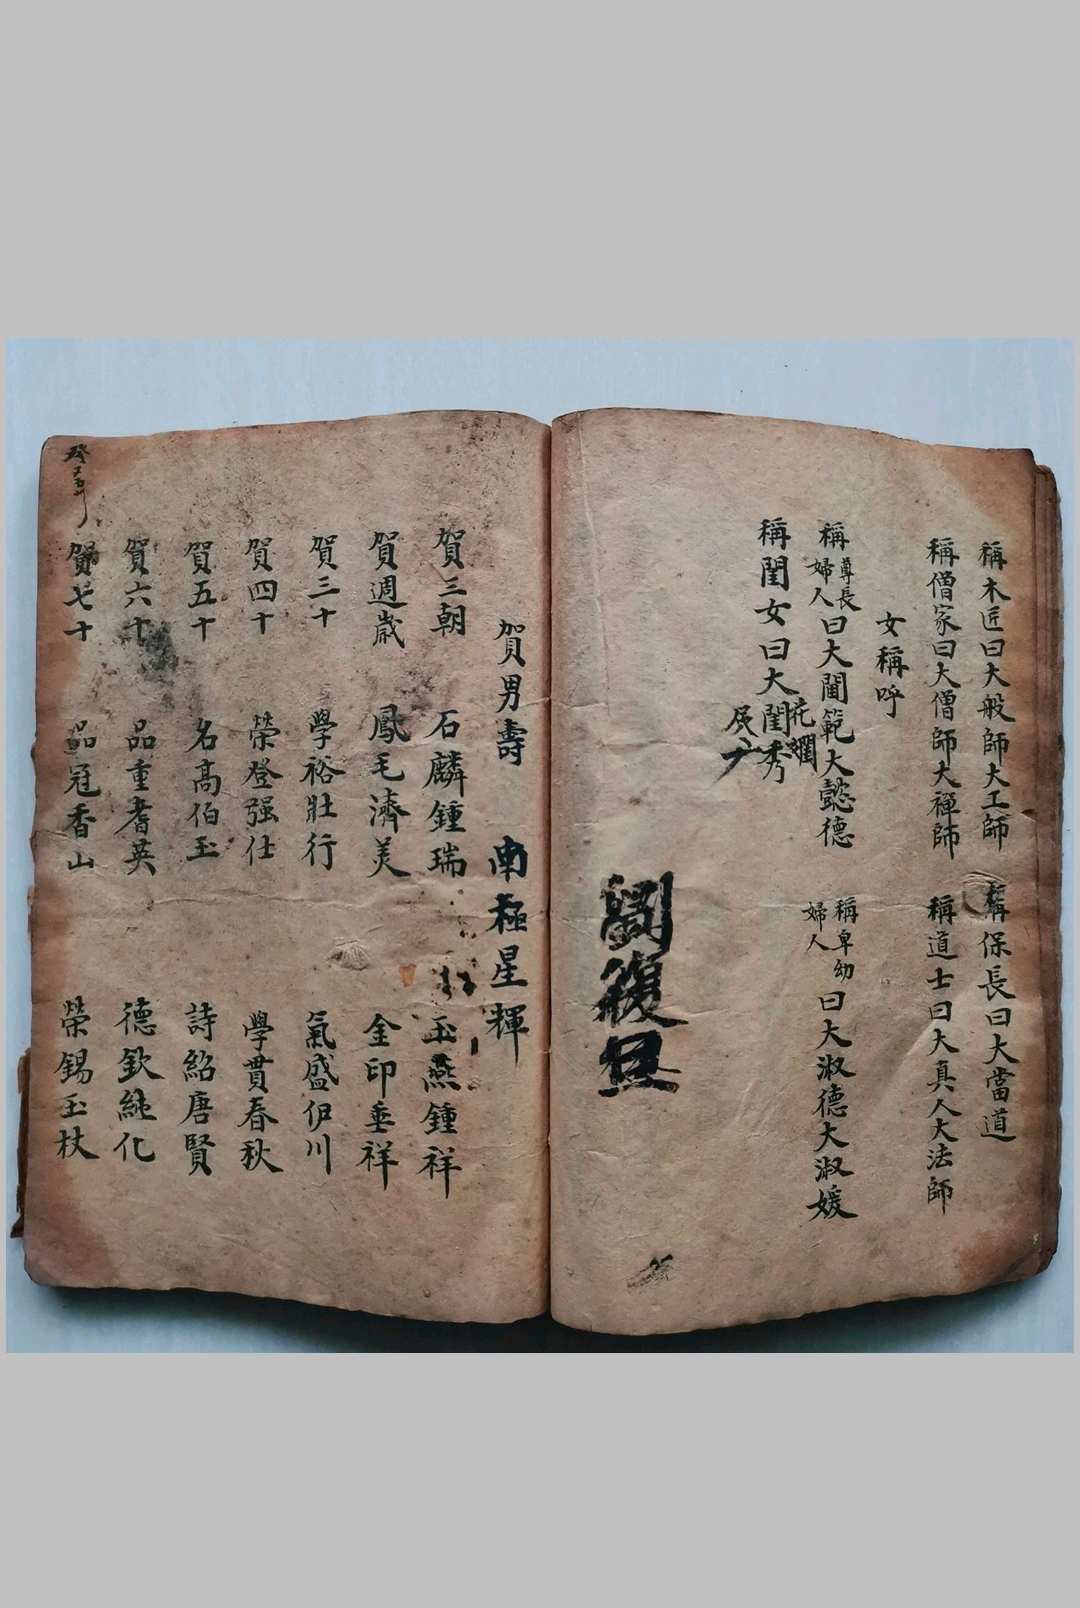 稱木匠曰大般師大工師
稱保長曰大當道
稱僧家曰大僧師大禪師
稱道士曰大真人大法師
女稱呼
稱尊長婦人曰大閫範大懿德
稱卑幼婦人曰大淑德大淑媛
稱閨女曰大閨秀
賀男壽 南極星輝
賀三朝 石麟鍾瑞 玉燕鍾祥
賀週歲 鳳毛濟美 金印垂祥
賀三十 學裕壯行 氣盛伊川
賀四十 榮登强仕 學貫春秋
賀五十 名高伯玉 詩紹唐賢
賀六十 品重耆英 德欽純化
賀七十 品冠香山 榮錫玉杖